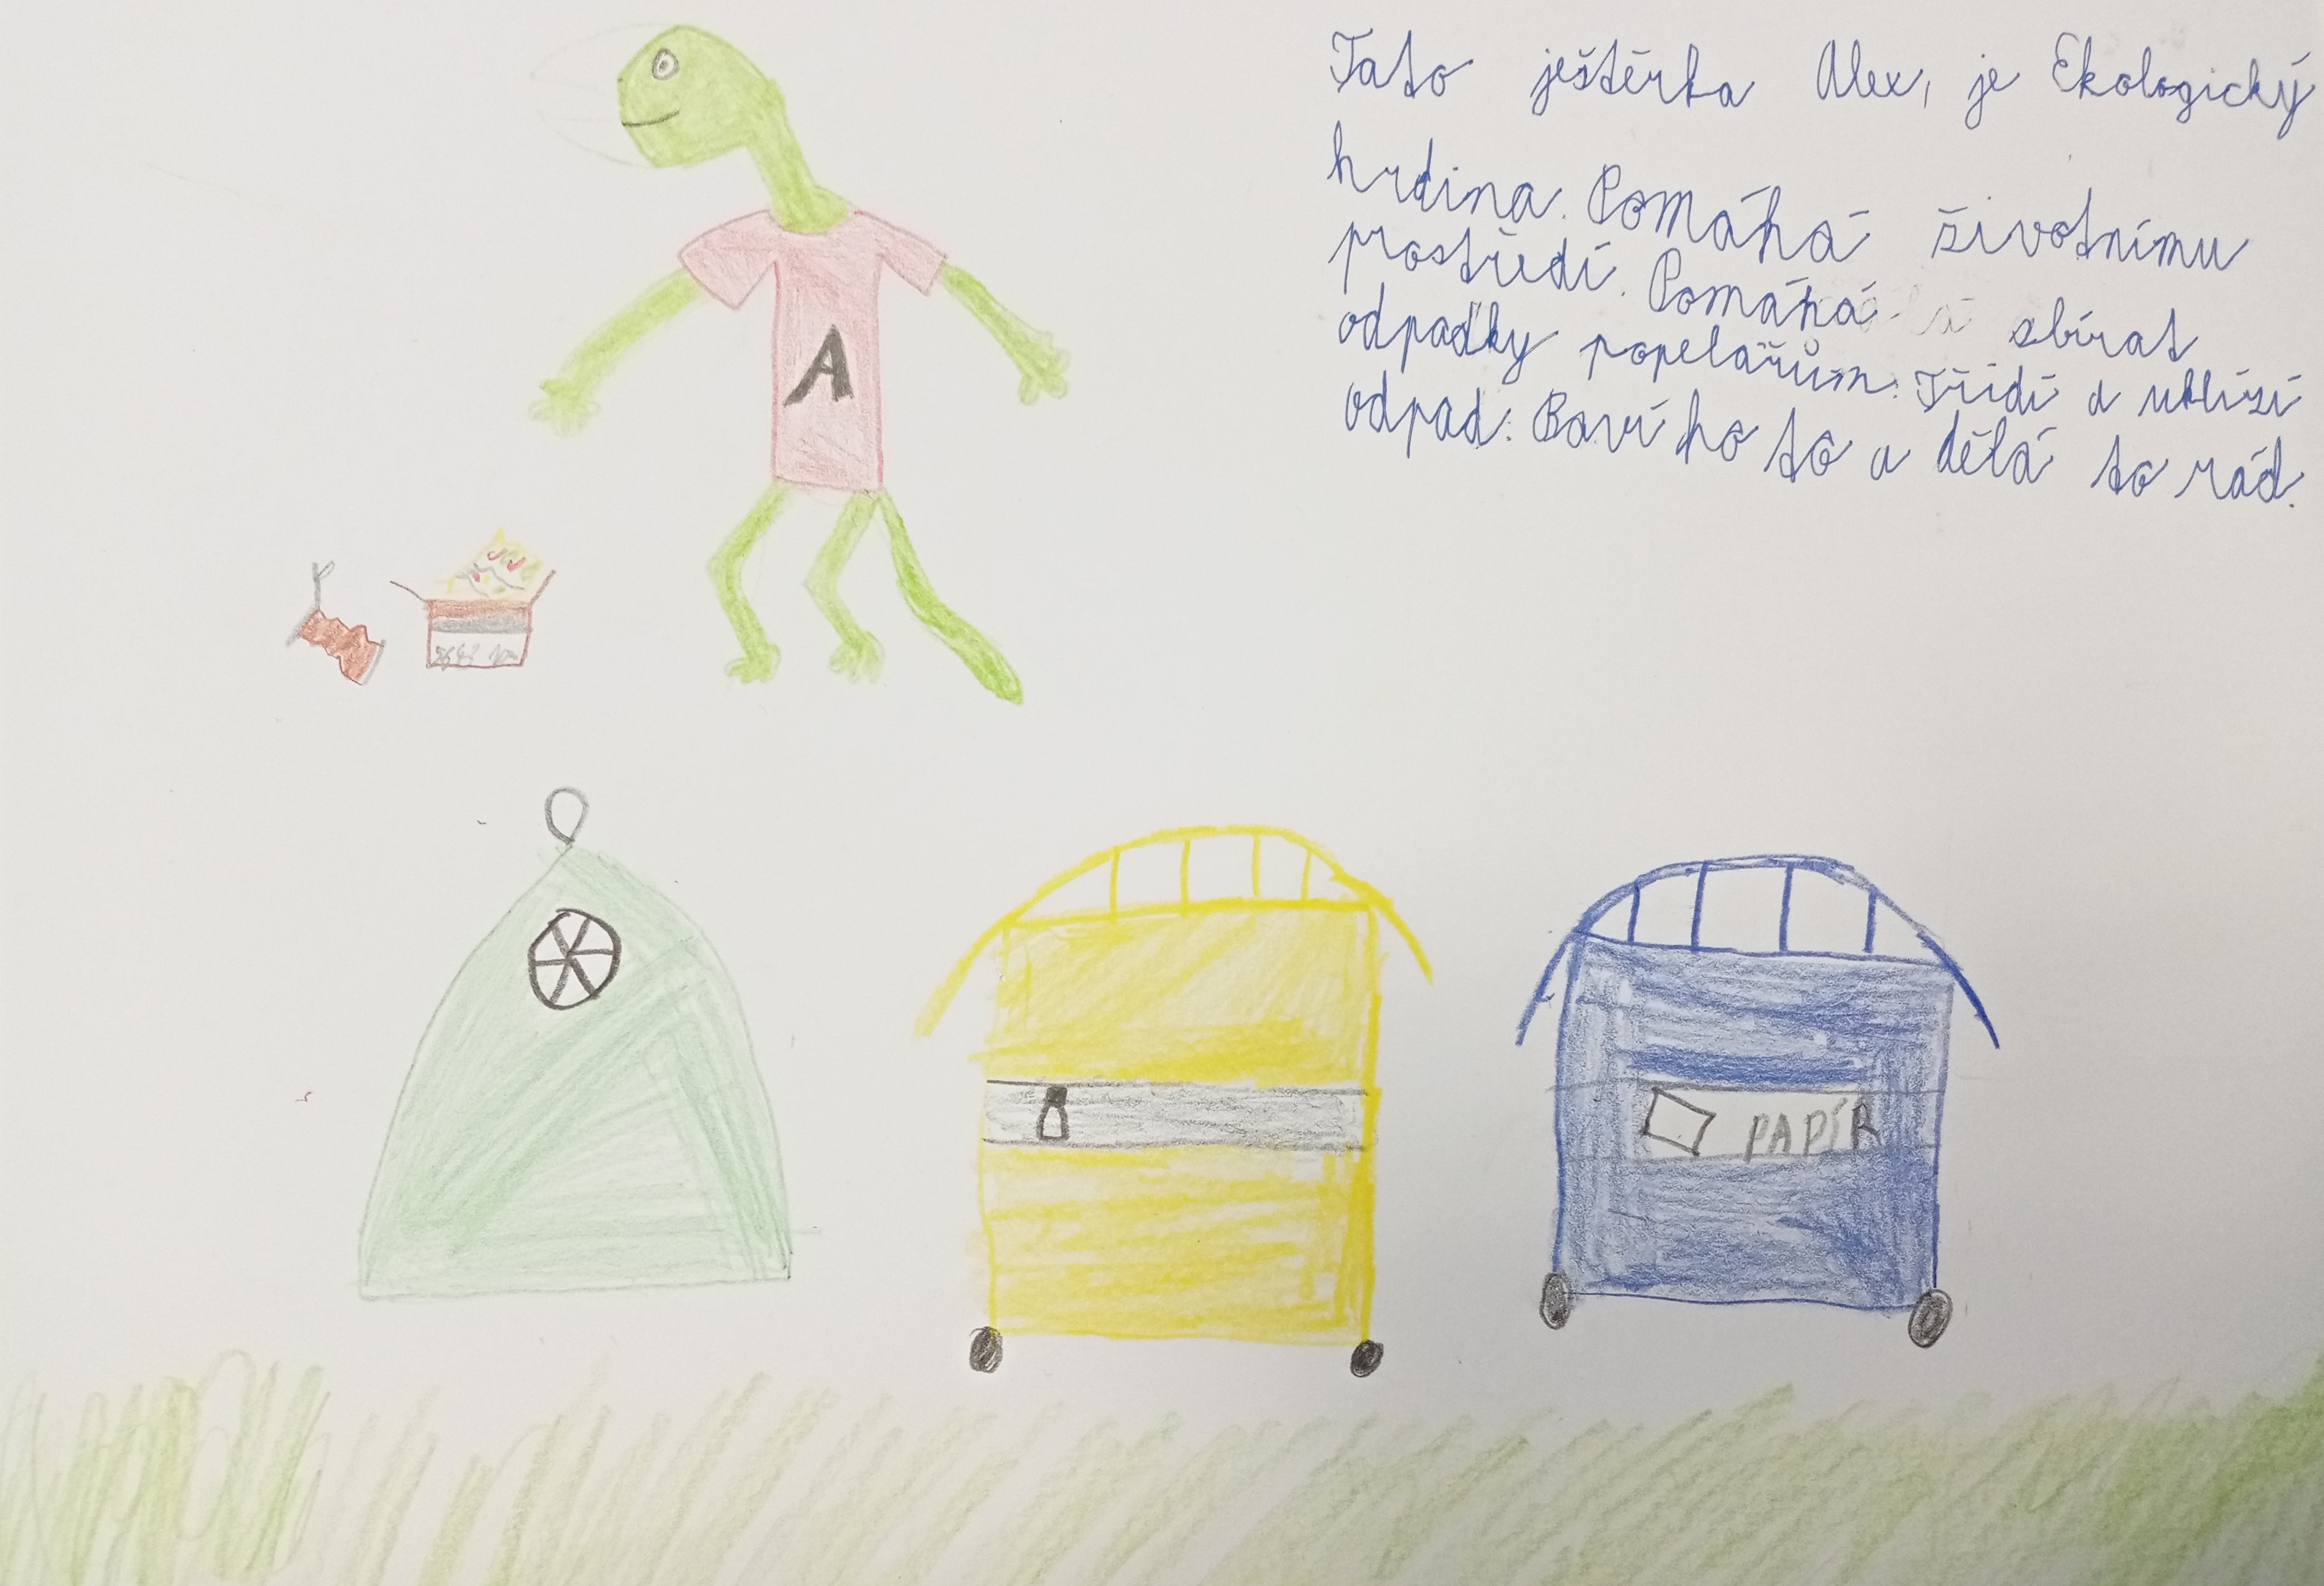 Tato ještěrka Alex, je Ekologický
hrdina. Pomáhá životnímu
prostředí. Pomáhá sbírat
odpadky popelářům. Třídí a uklízí
odpad. Baví ho to a dělá to rád.
A
PAPÍR